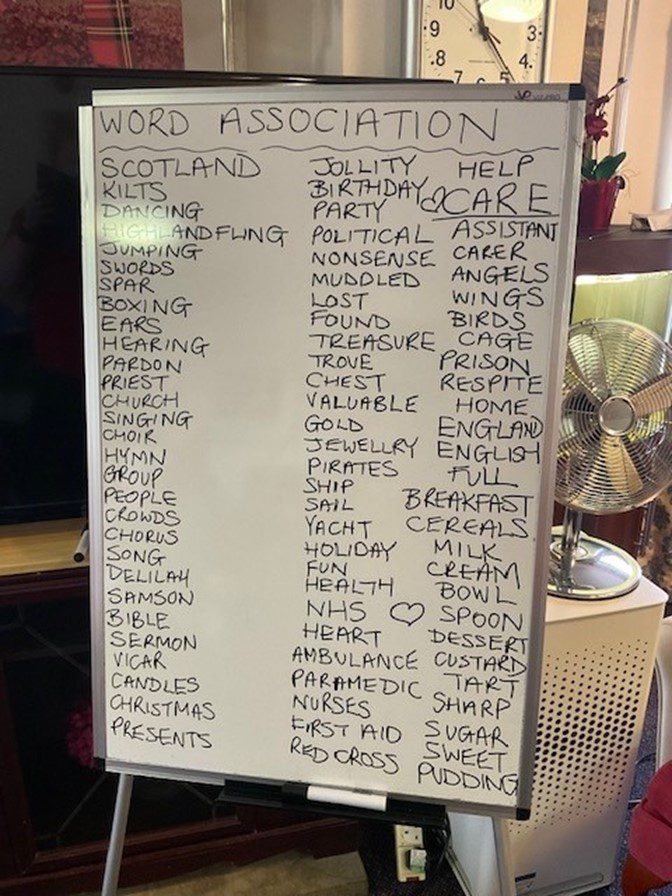 WORD ASSOCIATION
SCOTLAND
KILTS
DANCING
HIGHLANDFLING
JUMPING
SWORDS
SPAR
BOXING
EARS
HEARING
PARDON
PRIEST
CHURCH
SINGING
CHOIR
HYMN
GROUP
PEOPLE
CROWDS
CHORUS
SONG
DELILAH
SAMSON
BIBLE
SERMON
VICAR
CANDLES
CHRISTMAS
PRESENTS
JOLLITY
BIRTHDAY
PARTY
POLITICAL
NONSENSE
MUDDLED
LOST
FOUND
TREASURE
TROVE
CHEST
VALUABLE
GOLD
JEWELLRY
PIRATES
SHIP
SAIL
YACHT
HOLIDAY
FUN
HEALTH
NHS ♡
HEART
AMBULANCE
PARAMEDIC
NURSES
FIRST AID
RED CROSS
HELP
♡CARE
ASSISTANT
CARER
ANGELS
WINGS
BIRDS
CAGE
PRISON
RESPITE
HOME
ENGLAND
ENGLISH
FULL
BREAKFAST
CEREALS
MILK
CREAM
BOWL
SPOON
DESSERT
CUSTARD
TART
SHARP
SUGAR
SWEET
PUDDING
10
9
8
7
6
5
4
3